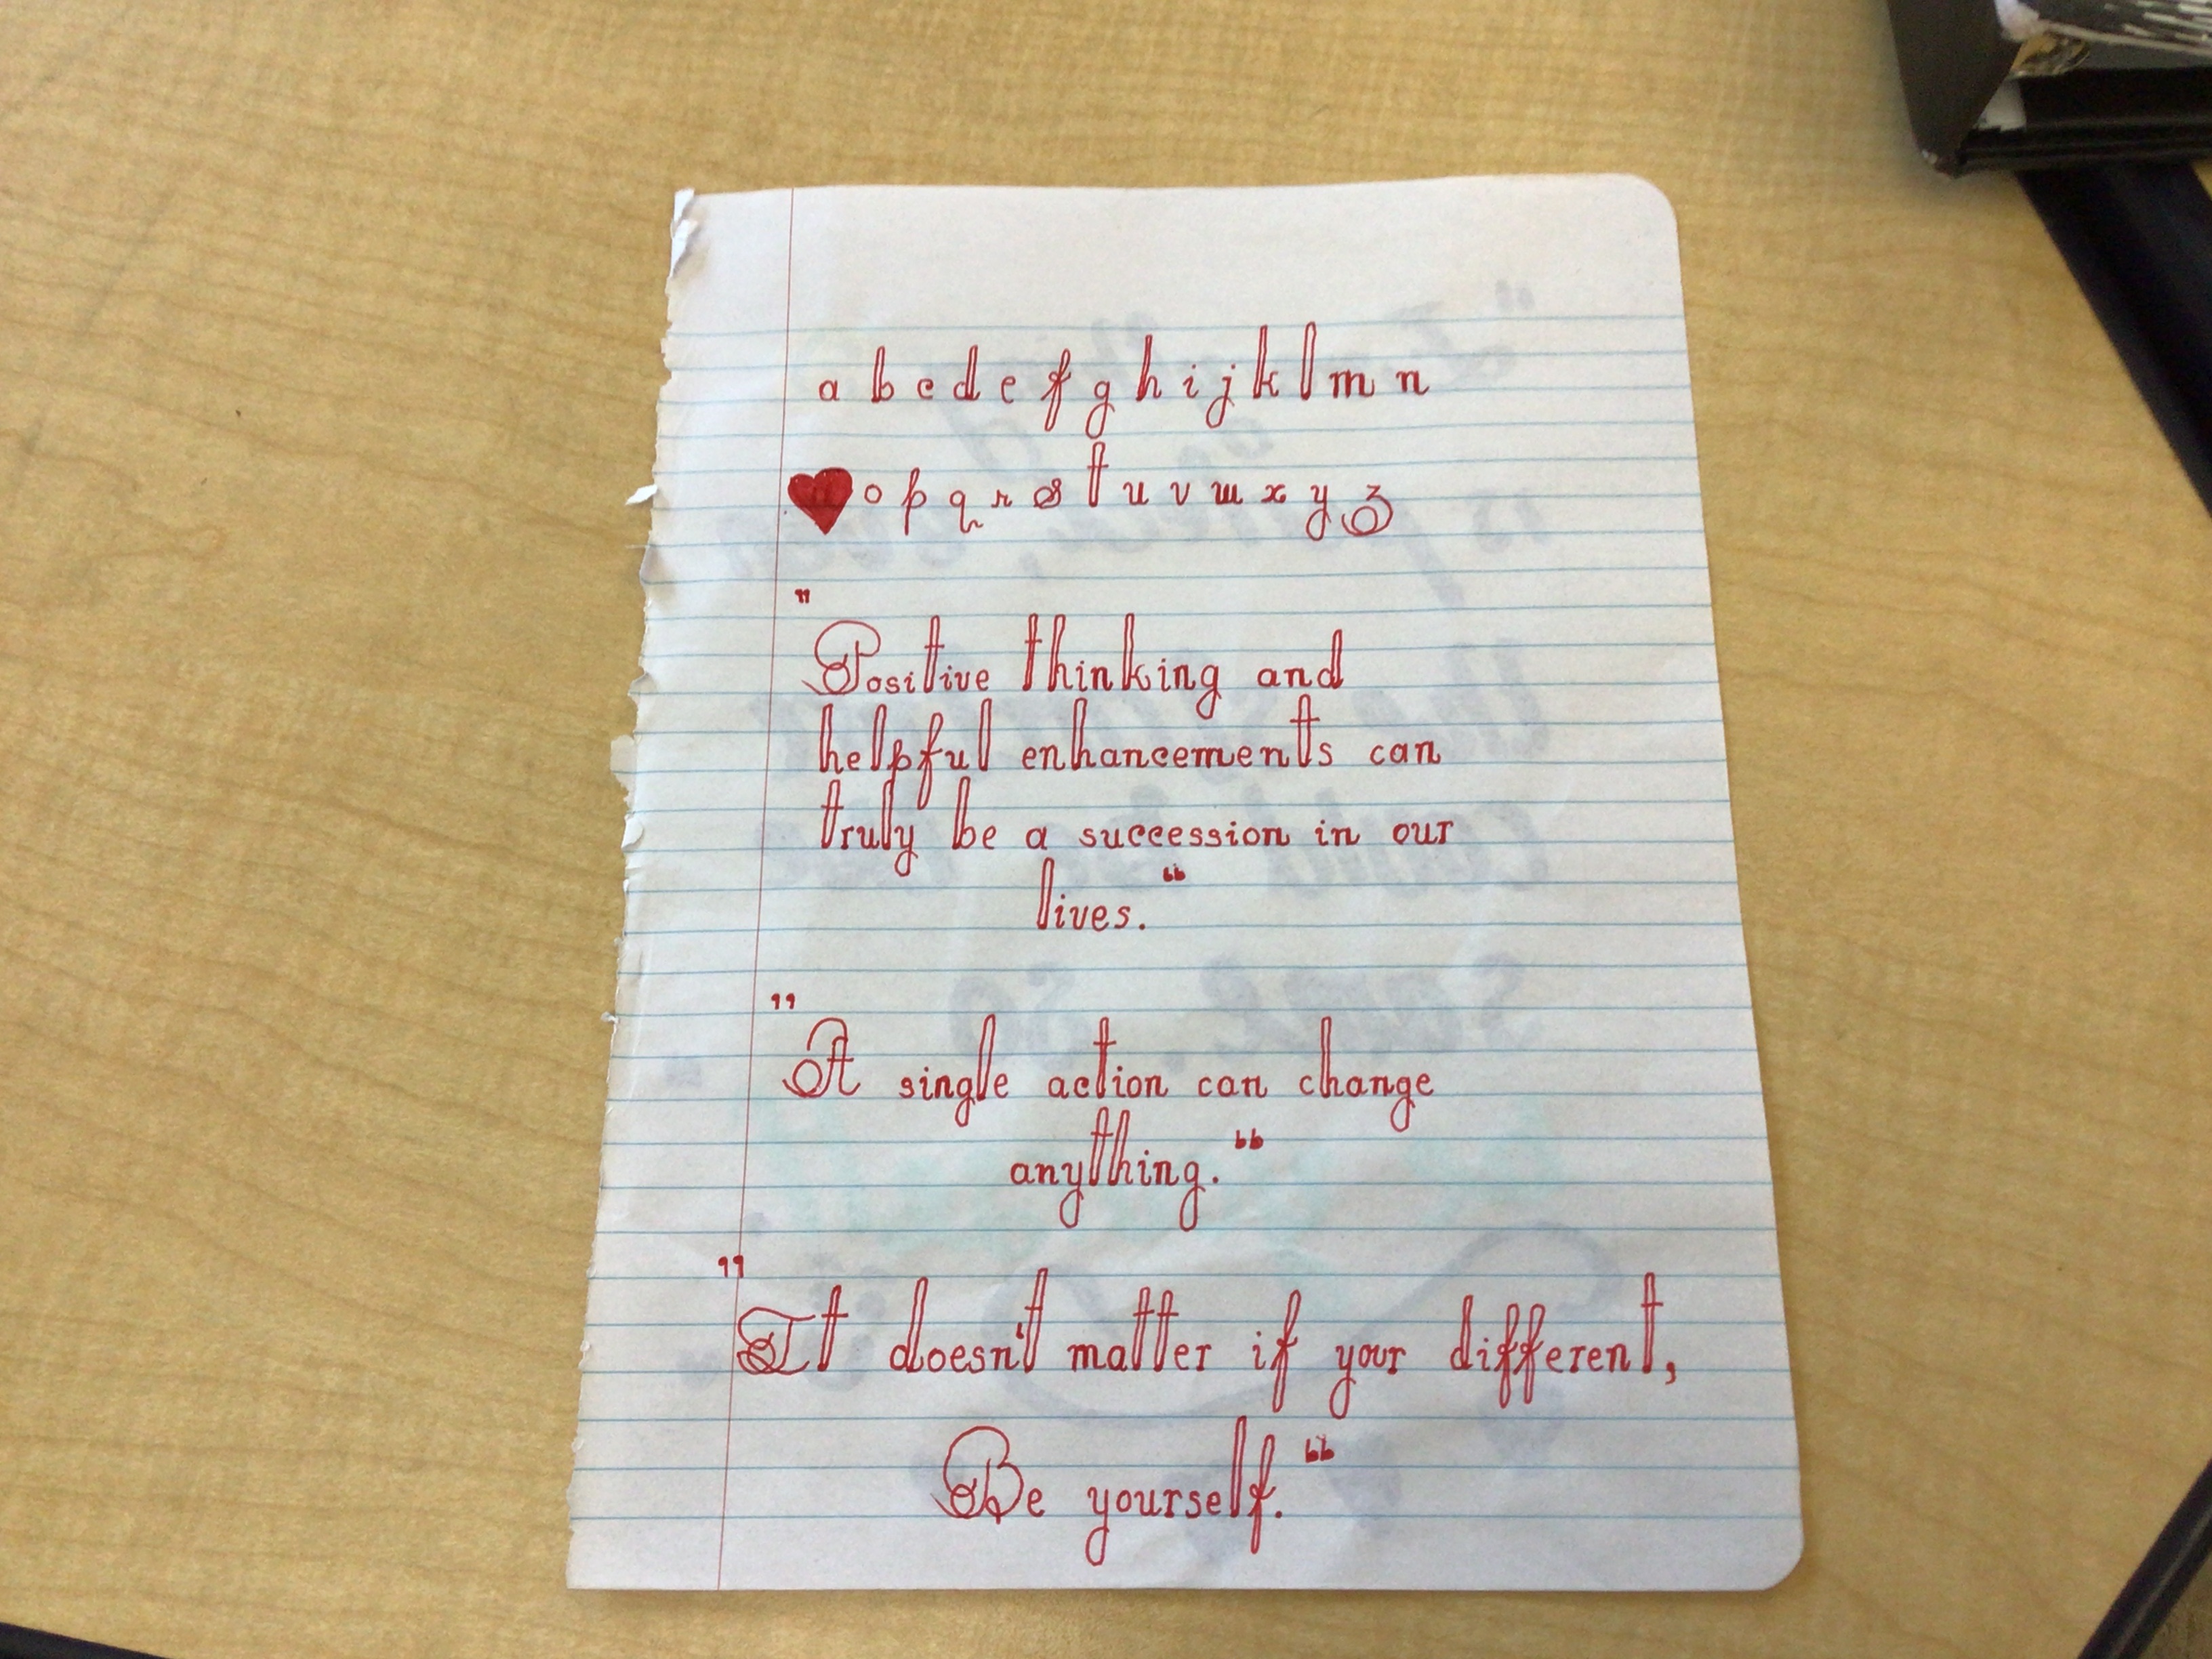 a b c d e f g h i j k l m n
o p q r s t u v w x y z
”
Positive thinking and
helpful enhancements can
truly be a succession in our
lives.“
”
A single action can change
anything.“
”
It doesn't matter if your different,
Be yourself.“